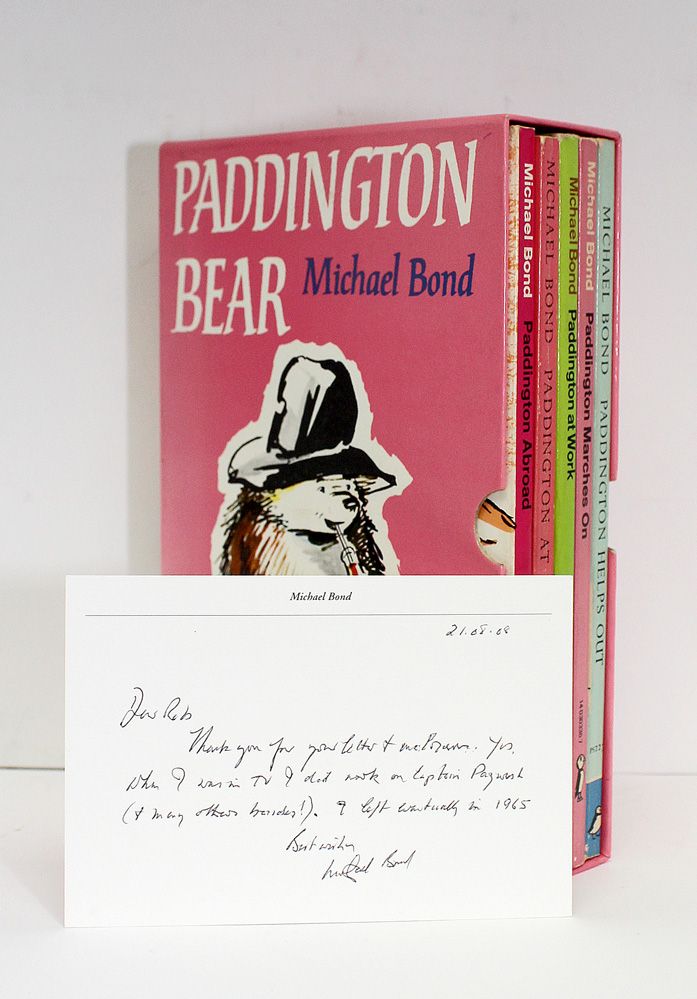 PADDINGTON
BEAR
Michael Bond
Michael Bond Paddington Abroad
MICHAEL BOND PADDINGTON AT
Michael Bond Paddington at Work
Michael Bond Paddington Marches On
MICHAEL BOND PADDINGTON HELPS OUT
Michael Bond
21.08.08
Dear
Thank you for your letter & Yes,
when I was in TV I did work on Captain Pugwash
(& many others besides!). I left eventually in 1965
Best wishes
Michael Bond